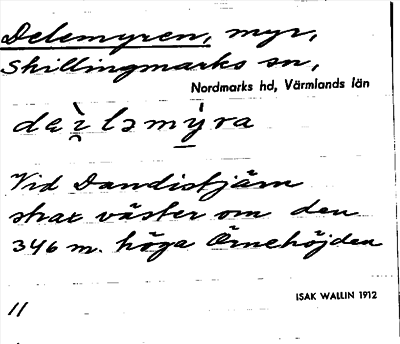 Delemyren, myr,
Skillingmarks sn,
Nordmarks hd, Värmlands län
Vid Dandistjärn
strax väster om den
346 m. höga Örnehöjden
ISAK WALLIN 1912
11